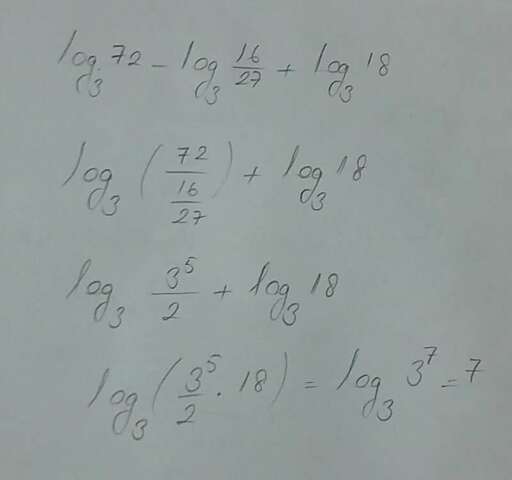 log₃ 72 - log₃ 16/27 + log₃ 18
log₃ (72/(16/27)) + log₃ 18
log₃ 3⁵/2 + log₃ 18
log₃ (3⁵/2 · 18) = log₃ 3⁷ = 7